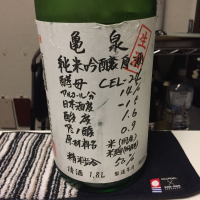 亀泉
生
純米吟醸原酒
酵母 CEL-24
アルコール分 14%
日本酒度
酸度 1.6
アミノ酸 0.9
原材料名 米(国産)
精米歩合 50%
清酒 1.8L